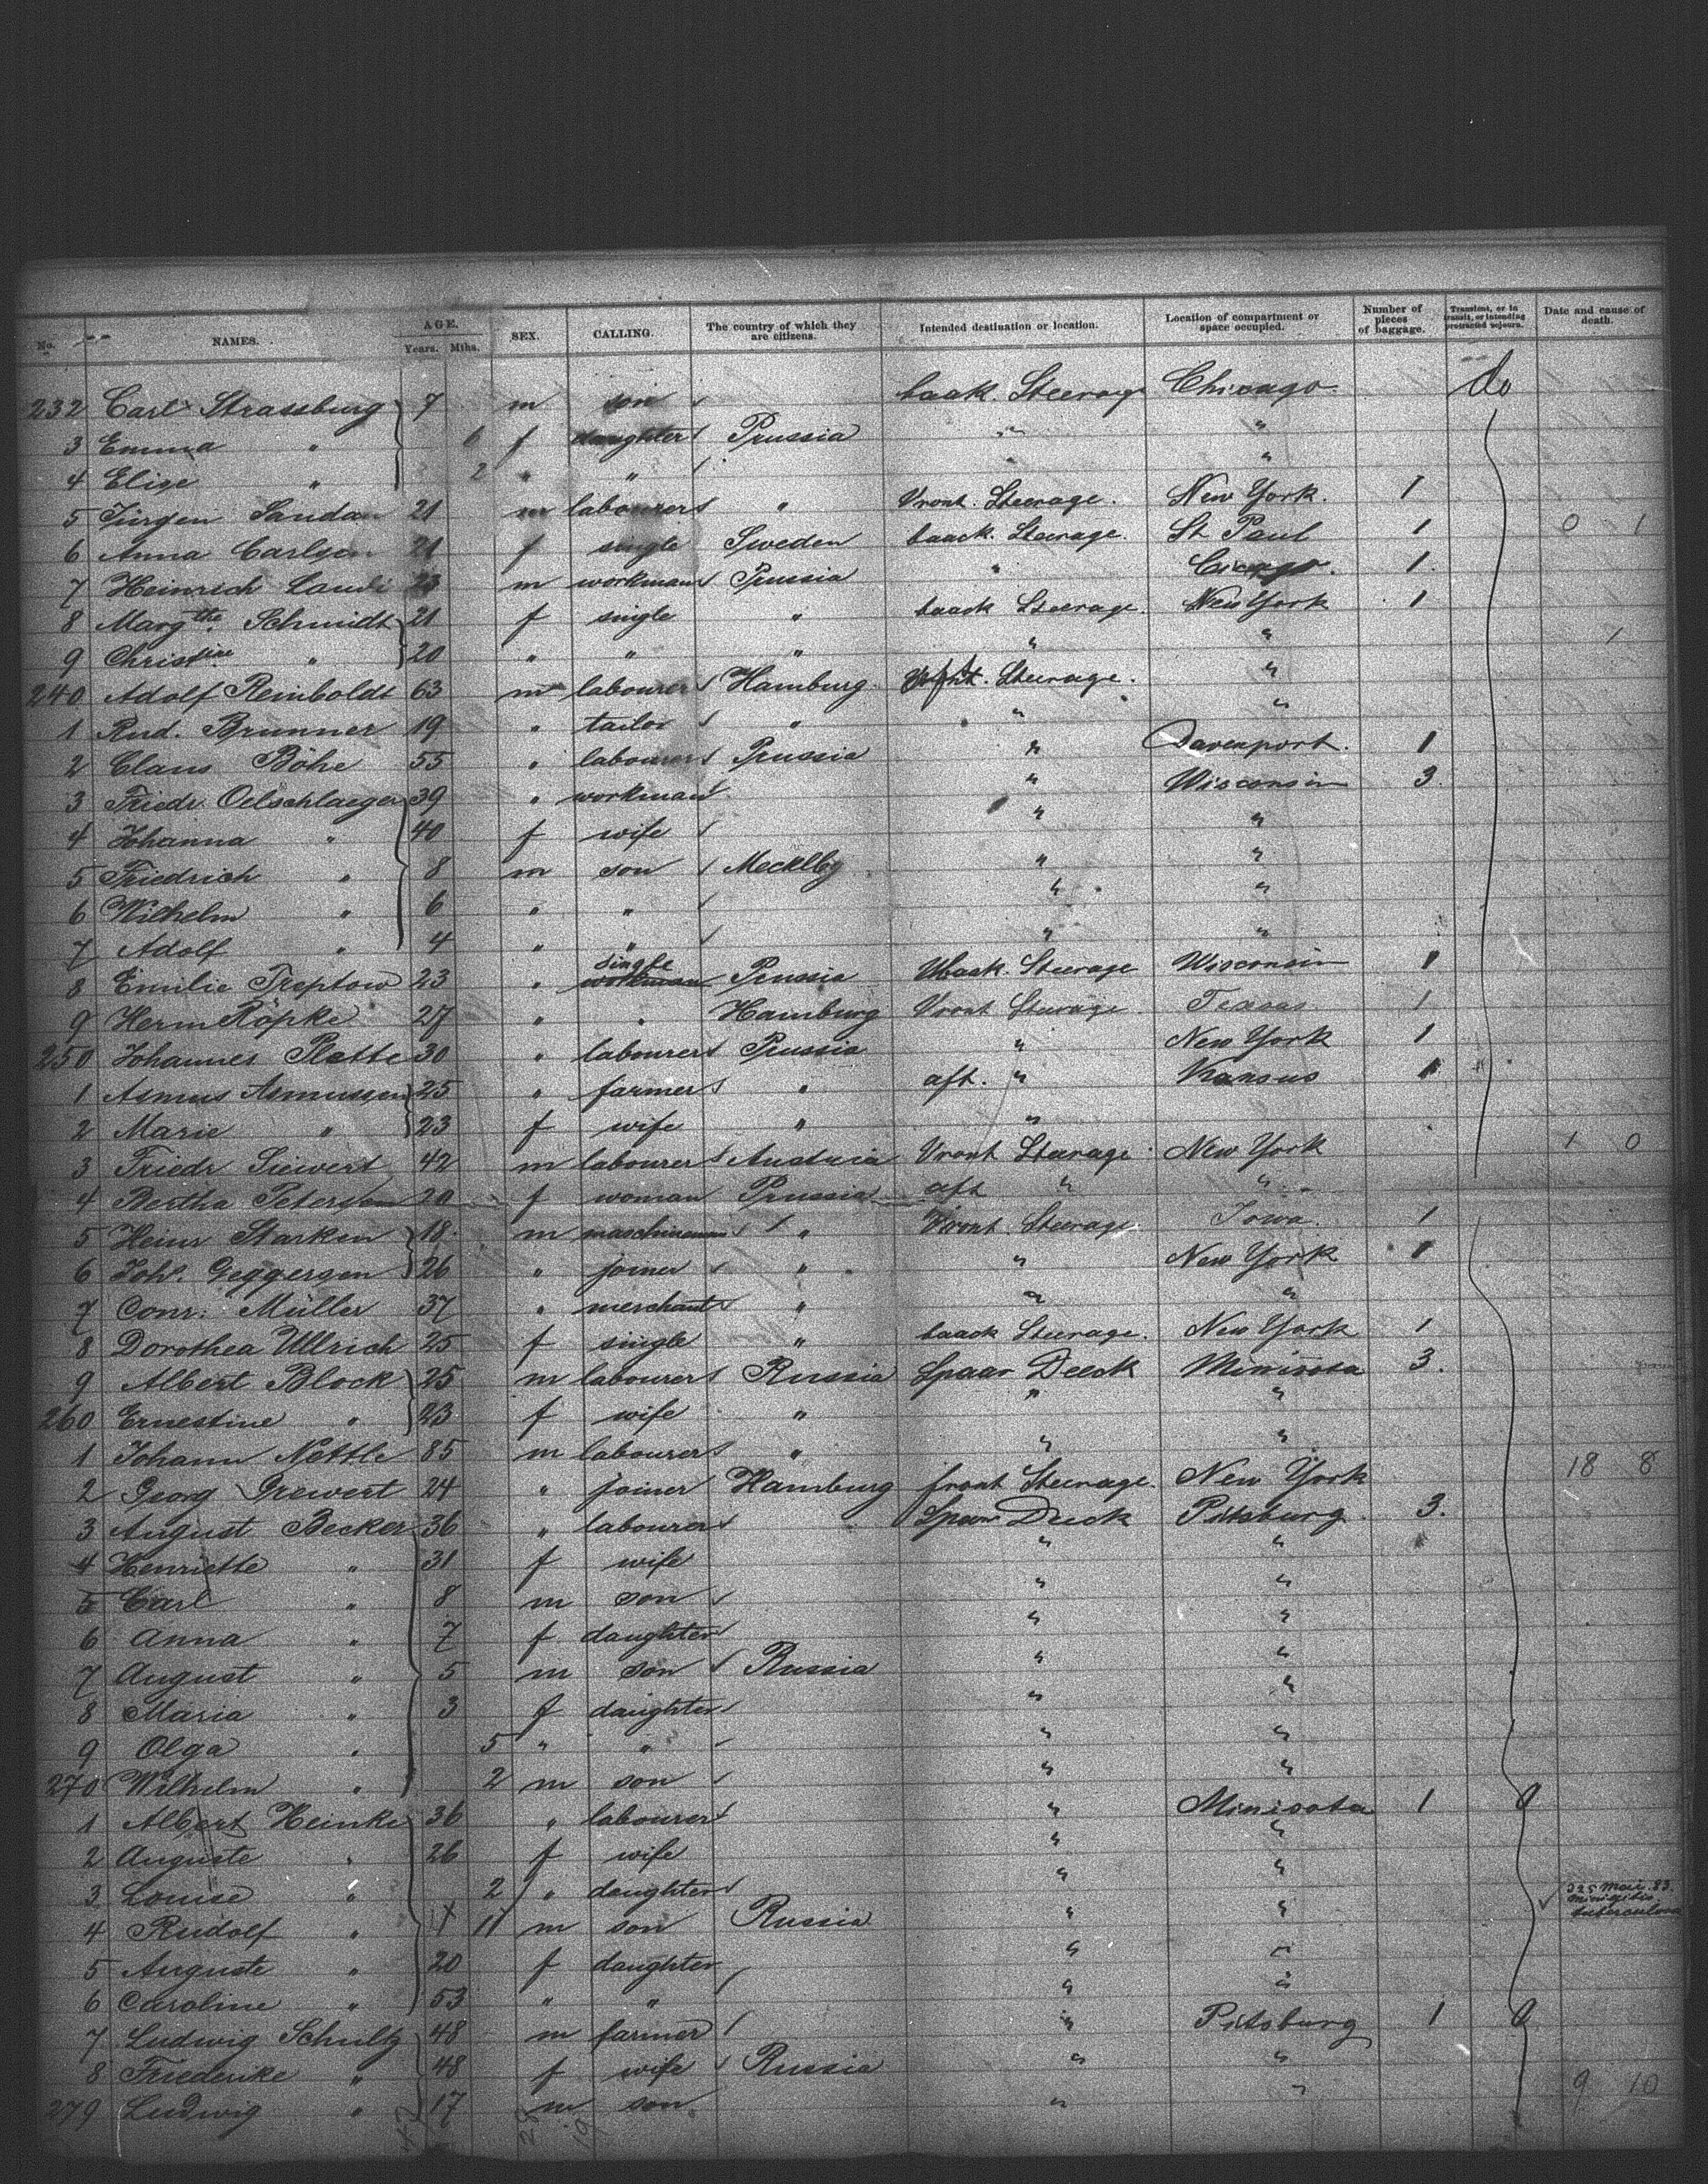 No. NAMES. AGE. Years. Mths. SEX. CALLING. The country of which they are citizens. Intended destination or location. Location of compartment or space occupied. Number of pieces of baggage. Transient, or in transit, or intending protracted sojourn. Date and cause of death.
232 Carl Strassburg 7 m son baak. Steerage Chicago do
3 Emma " 6 f daughter Prussia " "
4 Elise " 2 " " " "
5 Jürgen Sandau 21 m labourer " Vront. Steerage. New York. 1
6 Anna Carlson 21 f single Sweden baack. Steerage. St Paul 1 0 1
7 Heinrich 23 m workman Prussia " 1.
8 Margthe. Schmidt 21 f single " baack Steerage. New York 1
9 Christine " 20 " " " " " 1
240 Adolf Reinboldt 63 m labourer Hamburg Steerage. "
1 Rud. Brunner 19 " tailor " " "
2 Claus Böhe 55 " labourer Prussia " Davenport. 1
3 Friedr. Oelschlaeger 39 " workman " Wisconsin 3.
4 Johanna " 40 f wife " "
5 Friedrich " 8 m son Mecklbg " "
6 Wilhelm " 6 " " " "
7 Adolf " 4 " " " "
8 Emilie Treptow 23 " single workman Prussia baak. Steerage Wisconsin 1
9 Herm Röpke 27 " " Hamburg Vront Steerage Texas 1
250 Johannes Plette 30 " labourer Prussia " New York 1
1 Asmus Asmussen 25 " farmer " aft. " Kansus 1
2 Marie " 23 f wife " "
3 Friedr Siewert 42 m labourer Austria Vront Steerage New York 1 0
4 Bertha Petersen 20 f woman Prussia aft " "
5 Heinr Starken 18. m maschinenm " Vront. Steerage. Iowa. 1
6 Joh. Geggersen 26 " joiner " " New York 1
7 Conr. Müller 37 " merchant " " "
8 Dorothea Ullrich 25 f single " baack Steerage. New York 1
9 Albert Block 25 m labourer Russia Spaar Deeck Minisota 3.
260 Ernestine " 23 f wife " " "
1 Johann Nettle 85 m labourer " " "
2 Georg Grewert 24 " joiner Hamburg front Steerage. New York 18 8
3 August Becker 36 " labourer Spaar Deeck Pitsburg. 3.
4 Henriette " 31 f wife " "
5 Carl " 8 m son " "
6 Anna " 7 f daughter " "
7 August " 5 m son Russia " "
8 Maria " 3 f daughter " "
9 Olga " 5 " " " "
270 Wilhelm " 2 m son " "
1 Albert Heinke 36 " labourer " Minisota 1
2 Auguste " 26 f wife " "
3 Louise " 2 " daughter " "
4 Rudolf " 11 m son Russia " " 25 Mai. 83. tuberculosa
5 Auguste " 20 f daughter " "
6 Caroline " 53 " " " "
7 Ludwig Schultz 48 m farmer " Pitsburg 1
8 Friederike " 48 f wife Russia " "
279 Ludwig " 17 m son " " 9 10